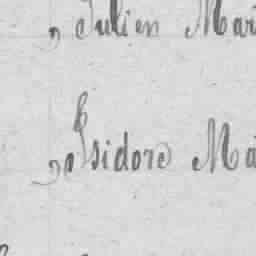 , Julien Mar
, Isidore Ma